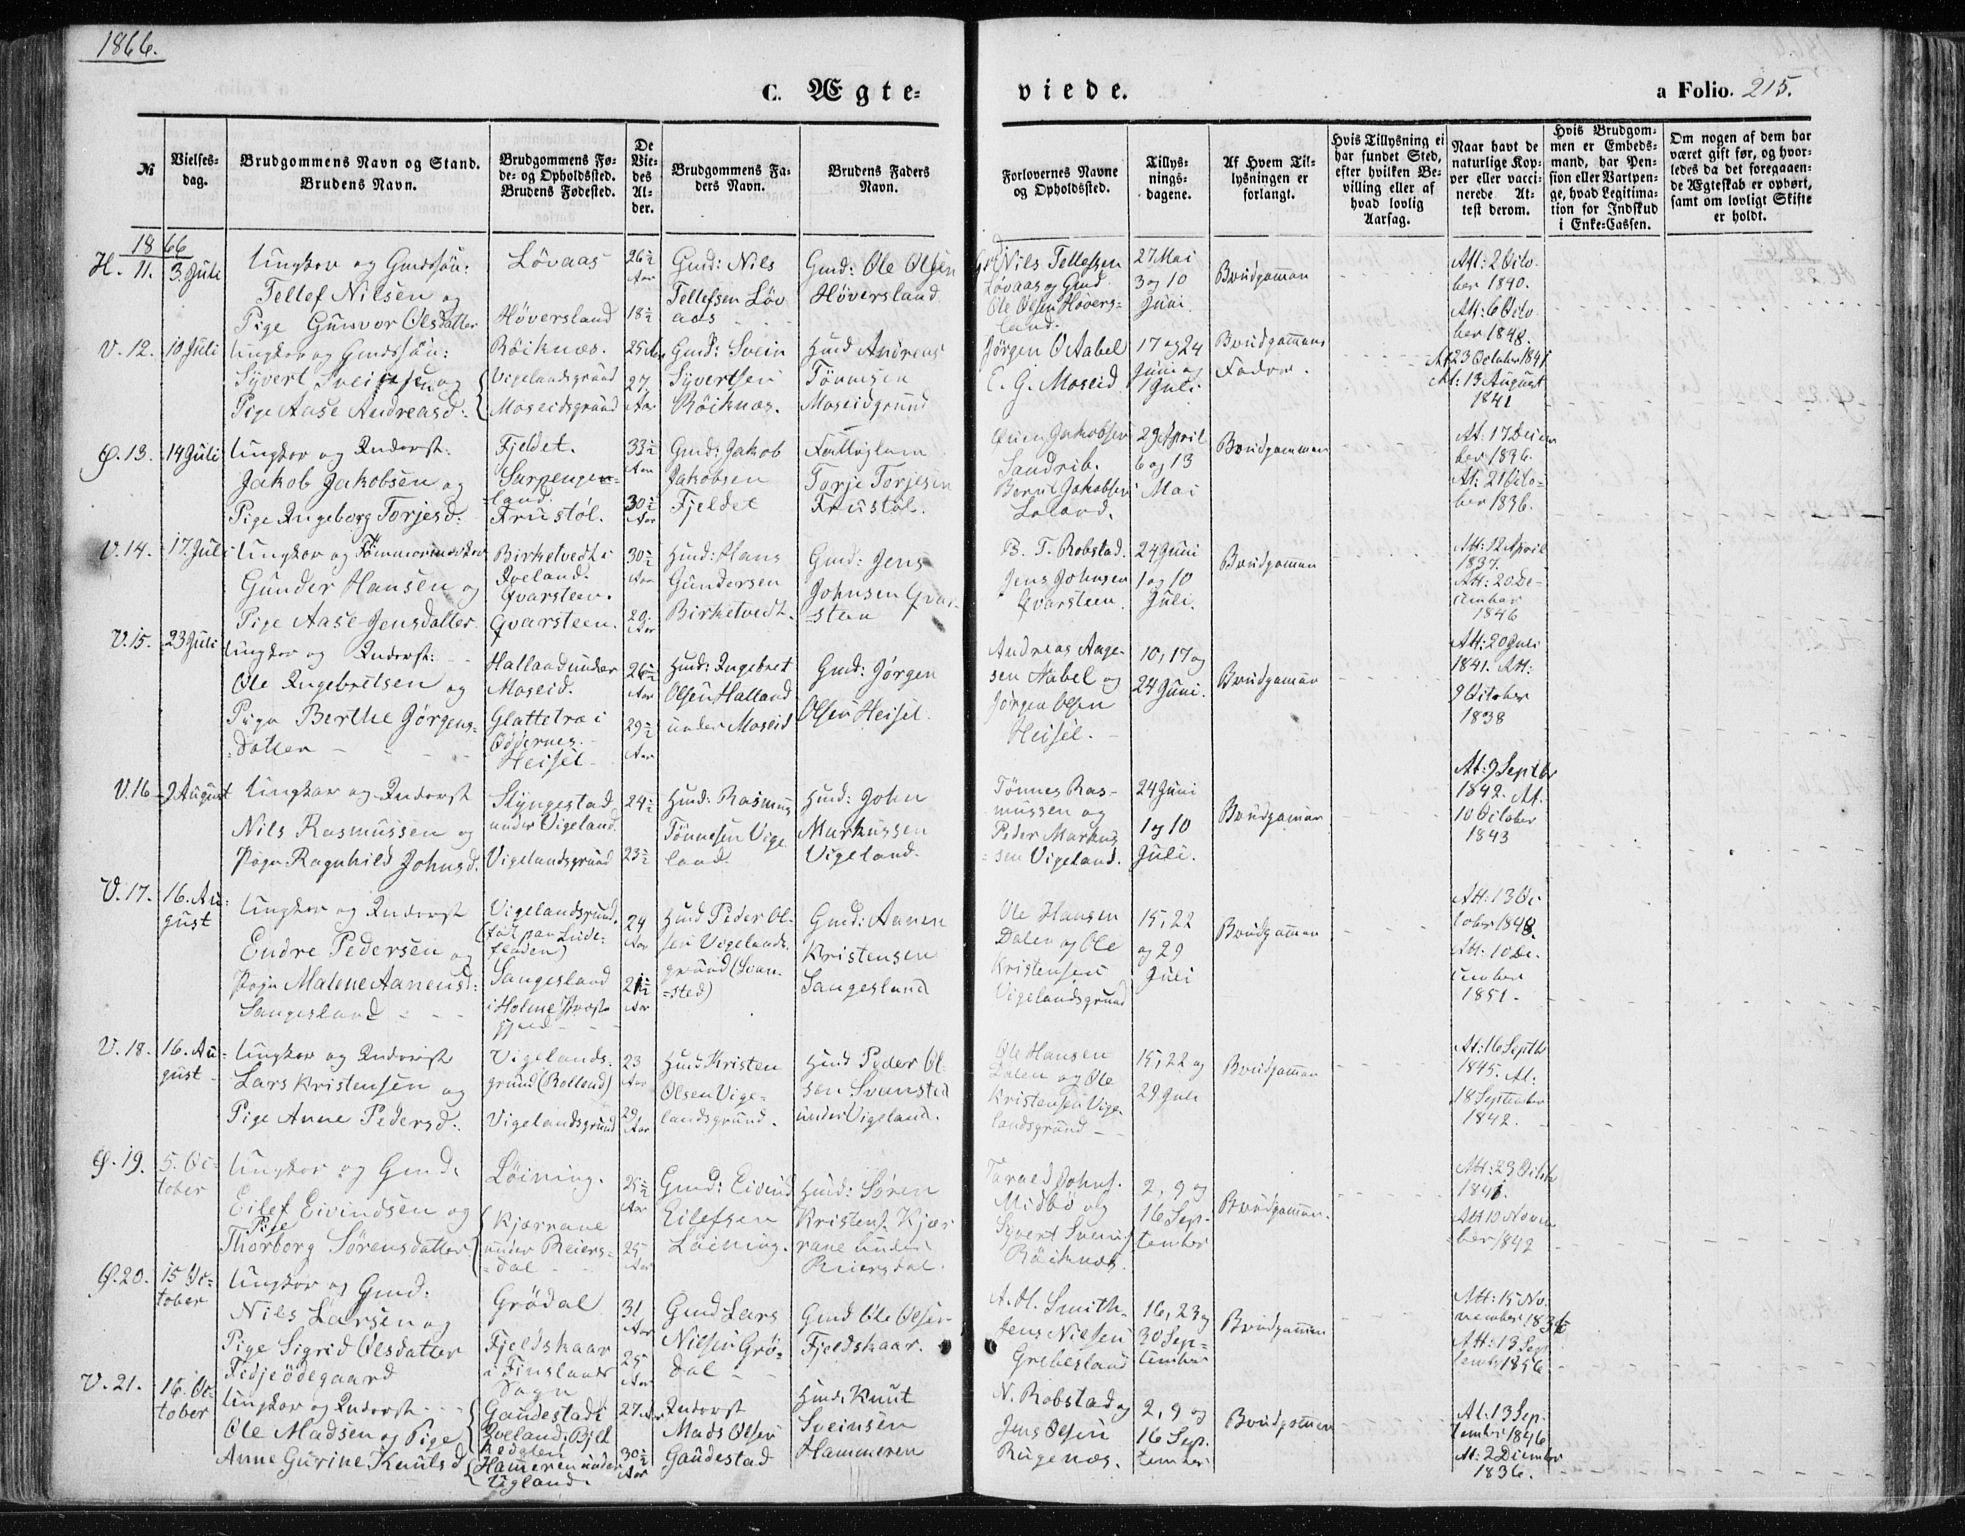 1866.
C. Ægte-
viede.
a Folio. 215.
№
Vielses-
dag.
Brudgommens Navn og Stand.
Brudens Navn.
Brudgommens Fø-
de- og Opholdssted.
Brudens Fødested.
De
Vie-
des
Al-
der.
Brudgommens Fa-
ders Navn.
Brudens Faders
Navn.
Forlovernes Navne
og Opholdssted.
Tillys-
nings-
dagene.
Af Hvem Til-
lysningen er
forlangt.
Hvis Tillysning ei
har fundet Sted,
efter hvilken Be-
villing eller af
hvad lovlig
Aarsag.
Naar havt de
naturlige Kop-
per eller vacci-
nerede At-
test derom.
Hvis Brudgom-
men er Embeds-
mand, har Pen-
sion eller Vartpen-
ge, hvad Legitima-
tion for Indskud
i Enke-Cassen.
Om nogen af dem har
været gift før, og hvor-
ledes da det foregaaen-
de Ægteskab er ophørt,
samt om lovligt Skifte
er holdt.
1866
H. 11.
3. Juli
Ungkar og Gmdssøn:
Tellef Nilsen og
Pige Gunvor Olsdatter
Løvaas
Høversland
26½
Aar
18½
Gmd: Nils
Tellefsen Løv
aas
Gmd: Ole Olsen
Høversland
Nils Tellefsen
Løvaas og Gmd
Ole Olsen Høvers-
land.
27 Mai
3 og 10
Juni.
Brudgommen
Att: 2 Octo
ber 1840.
Att: 6 Octo
ber 1848.
V. 12.
10 Juli
Ungkar og Gmdssøn:
Syvert Sveinsen og
Pige Aase Andreasd:
Röiknæs.
Vigelandsgrund
Moseidsgrund
25 Aar
27
Aar
Gmd: Svein
Syvertsen
Röiknæs.
Husmd Andreas
Tönnesen
Moseidgrund
Jörgen O Aabel
E. G. Moseid
17 og 24
Juni og
1 Juli
Brudgommens
Fader.
At 23 October 1841
At: 13 August
1841
Ø. 13.
14 Juli
Ungkar og Inderst:
Jakob Jakobsen og
Pige Ingeborg Torjesd:
Fjeldet.
Sarpengen-
land.
Frustöl.
33½
Aar
30½
Aar
Gmd: Jakob
Jakobsen
Fjeldet
Torje Torjesen
Frustöl.
Jakobsen
Sandrib.
Jakobsen
Loland.
29 April
6 og 13
Mai
Brudgommen
At: 17 Decem
ber 1836.
At: 21 Octo-
ber 1836.
V. 14.
17. Juli
Ungkar og Tømmermand
Gunder Hansen og
Pige Aase Jensdatter
Birketvedt i
Iveland.
Qvarsteen.
Qvarsteen.
30½
Aar
20
Aar
Husmd: Hans
Gundersen
Birketvedt.
Gmd: Jens
Johnsen Qvar-
steen
B. T. Robstad.
Jens Johnsen
Qvarsteen.
24 Juni
1 og 10
Juli.
Brudgommen
Att: 12 April
1837.
Att: 20 De-
cember
1846
V. 15.
23 Juli
Ungkar og Inderst:
Ole Ingebretsen og
Pige Berthe Jörgens-
datter
Halland under
Moseid.
Glattetræ i
Øvrernes.
Heisel
26½
Aar
29½
Aar
Husmd: Ingebret
Olsen Halland
under Moseid
Gmd: Jørgen
Olsen Heisel.
Andreas Aage-
sen Aabel og
Jørgen Olsen
Heisel.
10, 17 og
24 Juni.
Brudgommen
Att: 20 Juli
1841. Att:
9 October
1838
V. 16
9 August
Ungkar og Inderst
Nils Rasmussen og
Pige Ragnhild Johnsd.
Slyngestad
under Vigeland
Vigelandsgrund
24½
23½
Husmd: Rasmus
Tönnesen Vige
land.
Husmd: John
Markussen
Vigeland.
Tönnes Ras-
mussen og
Peder Markus
sen Vigeland.
24 Juni
1 og 10
Juli.
Brudgommen
At: 9 Septbr
1842. At.
10 October
1843
V. 17.
16. Au-
gust
Ungkar og Inderst
Endre Pedersen og
Pige Malene Aanensd:
Sangesland
Vigelandsgrund.
Sangesland
i Holme Præste
gjeld
24
Aar
21½
Aar
Husmd Peder Ol-
sen Vigelands.
grund (Svan-
sted)
Gmd: Aanen
Kristensen
Sangesland
Ole Hansen
Dalen og Ole
Kristensen
Vigelandsgrund
15, 22
og 29
Juli
Brudgommen
Att: 13 Oc
tober 1848.
Att: 10 De-
cember
1851.
V. 18.
16. Au-
gust
Ungkar og Inderst
Lars Kristensen og
Pige Anne Pedersd:
Vigelands-
grund (Rolland)
Vigelandsgrund
23
Aar
29
Aar
Husmd Kristen
Olsen Vige-
landsgrund.
Husmd Peder Ol
sen Svansted
under Vigeland.
Ole Hansen
Dalen og Ole
Kristensen Vige-
landsgrund
15, 22 og
29 Juli
Brudgommen
At: 16 Septbr
1845. At:
18 September
1842.
Ø. 19.
5. Oc-
tober
Ungkar og Gmd.
Eilef Eivindsen og
Pige
Thorborg Sörensdatter
Löining.
Kjærrane
under Reiers-
dal
25½
Aar
25
Aar
Gmd: Eivind
Eilefsen
Löining.
Husmd: Sören
Kristens. Kjær
rane under
Reiersdal.
Tarald Johns.
Midbö og
Syvert Sveins
Röiknæs.
2, 9 og
16 Sep-
tember
Brudgommen.
Att: 23 Octbr
1841.
Att 10 Novem
ber 1842
Ø. 20.
15 Oc-
tober
Ungkar og Gmd:
Nils Larsen og
Pige Sigrid Olsdatter
Fidjeödegaard
Grödal
Fjeldskaar
i Finslands
Sogn
31
Aar
25
Aar
Gmd Lars
Nilsen Grö-
dal
Gmd Ole Olsen
Fjeldskaar.
A. H. Smith
Jens Nilsen
Grebesland
16, 23 og
30 Sep-
tember
Brudgommen
Att: 15 No.
vember 1836
Att: 13 Sept
tember 1856
V. 21.
16. Oc-
tober
Ungkar og Inderst
Ole Madsen og Pige
Anne Gurine Knutsd
Gaudestad i
Iveland.
Hammeren under
Ugland.
27 Aar
30½
Aar
Inderst
Mads Olsen
Gaudestad
Husmd: Knut
Sveinsen
Hammeren
N. Robstad og
Jens Olsen
Rugenæs.
2, 9 og
16 Sep.
tember
Brudgommen
At. 13 Sep-
tember 1846
At: 2 December
1836.